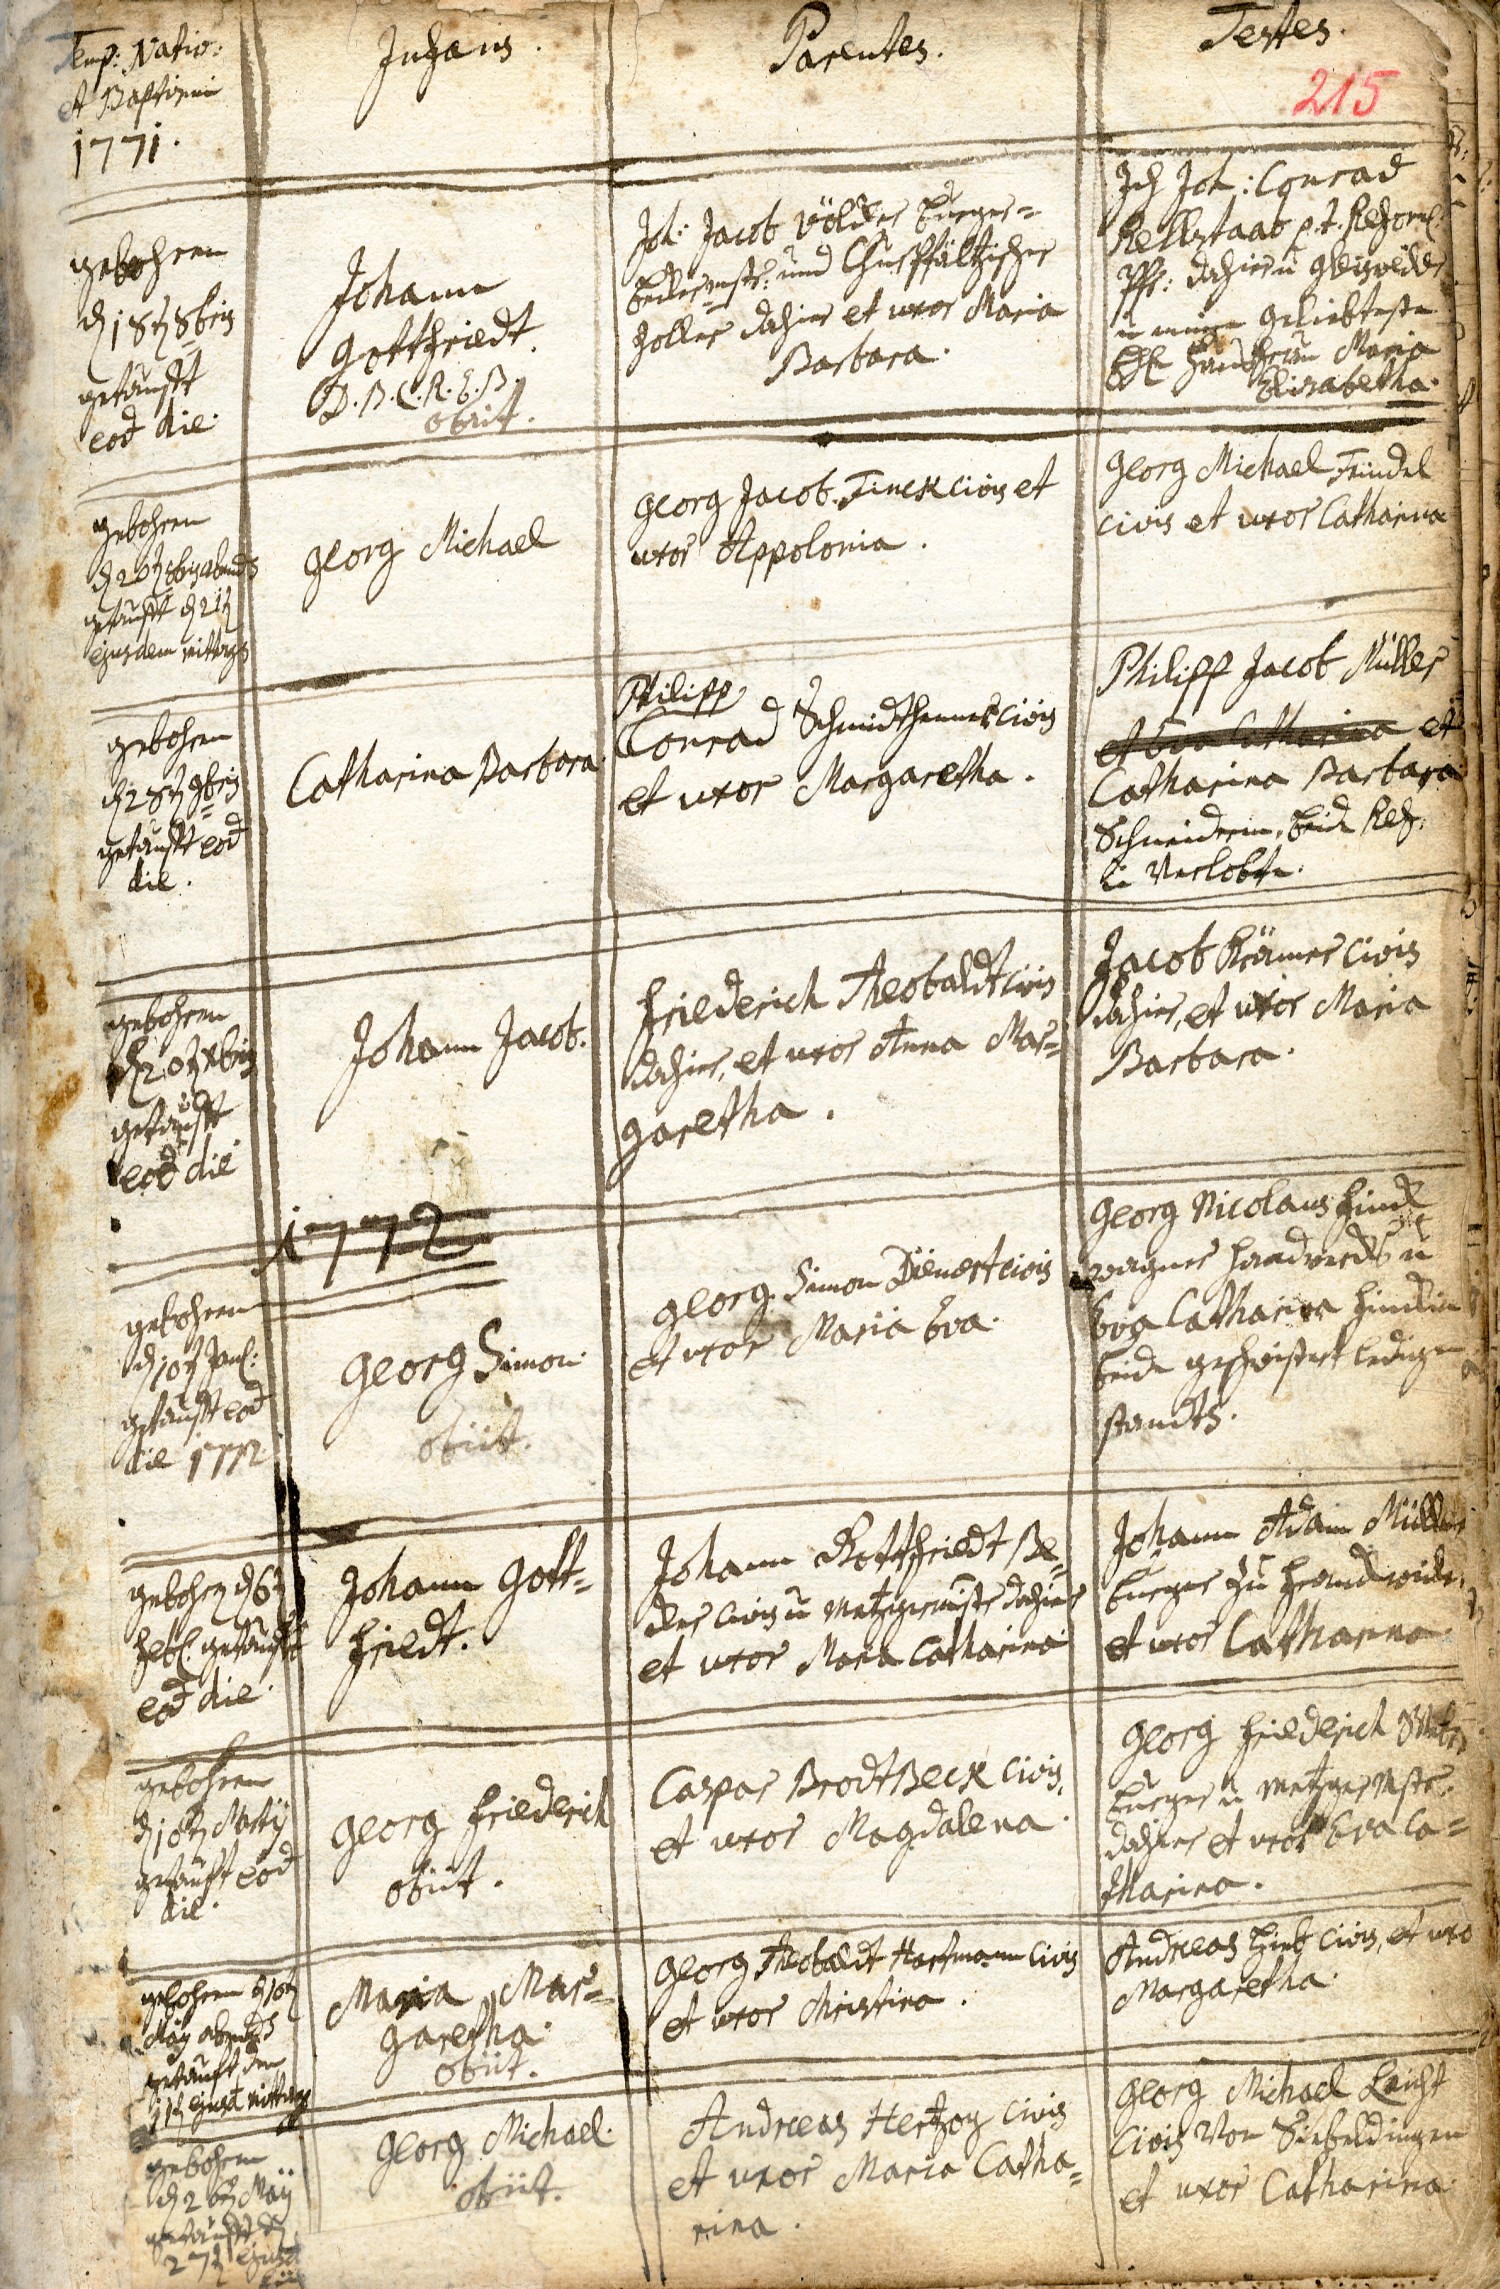 Temp: Nativ:
et Baptismi
1771.
Infans.
Parentes.
Testes.
215
gebohren
d 18t 8bris
getaufft
eod die.
Johann
Gottfriedt.
D. B. C. R. E. B.
obiit.
Joh: Jacob Völcker burger=
und Churpfältzischer
Zoller dahier et uxor Maria
Barbara.
Ich Joh: Conrad
Rellstaab p. t. Reform.
Pfr: dahier u
u meine geliebteste
Haußfrau Maria
Elisabetha.
gebohren
d 20t 8bris abends
getaufft d 21t
ejusdem mittags
Georg Michael
Georg Jacob Finck civis et
uxor Appolonia.
Georg Michael Trindel
civis et uxor Catharina
gebohren
d 28t 9bris
getaufft eod
die.
Catharina Barbara.
Philipp
Conrad civis
et uxor Margaretha.
Philipp Jacob Müller
et Eva Catharina et
Catharina Barbara
Schneiderin, beide Ref.
u Verlobte.
gebohren
d 20t Xbris
getaufft
eod die
Johann Jacob.
Friederich Theobaldt civis
dahier, et uxor Anna Mar=
garetha.
Jacob Krämer civis
dahier, et uxor Maria
Barbara.
1772
gebohren
d 10t Jan:
getaufft eod
die 1772
Georg Simon.
obiit.
Georg Simon Dienert civis
et uxor Maria Eva.
Georg Nicolaus
wagner handwercks u
Eva Catharina
beide geschwistert ledigen
standts.
gebohren d 6t
Feb. getaufft
eod die.
Johann Gott=
friedt.
Johann Gottfriedt Be=
cker civis u Metzgermstr dahier
et uxor Maria Catharina
Johann Adam Müller
burger zu
et uxor Catharina.
gebohren
d 10t Martij
getaufft eod
die.
Georg Friederich
obiit.
Caspar BrodtBeck civis,
et uxor Magdalena.
Georg Friederich
burger u Metzger Mstr.
dahier et uxor Eva Ca=
tharina.
gebohren d 10t
May abends
getaufft den
11t ejusd mittags
Maria Mar=
garetha.
obiit.
Georg Theobaldt Hartmann civis
et uxor Christina.
Andreas Hirt civis, et uxo
Margaretha.
gebohren
d 26t Maÿ
getaufft d
27t ejusd
Georg Michael.
obiit.
Andreas Hertzog civis
et uxor Maria Catha=
rina.
Georg Michael Leicht
civis von Siebeldingen
et uxor Catharina.